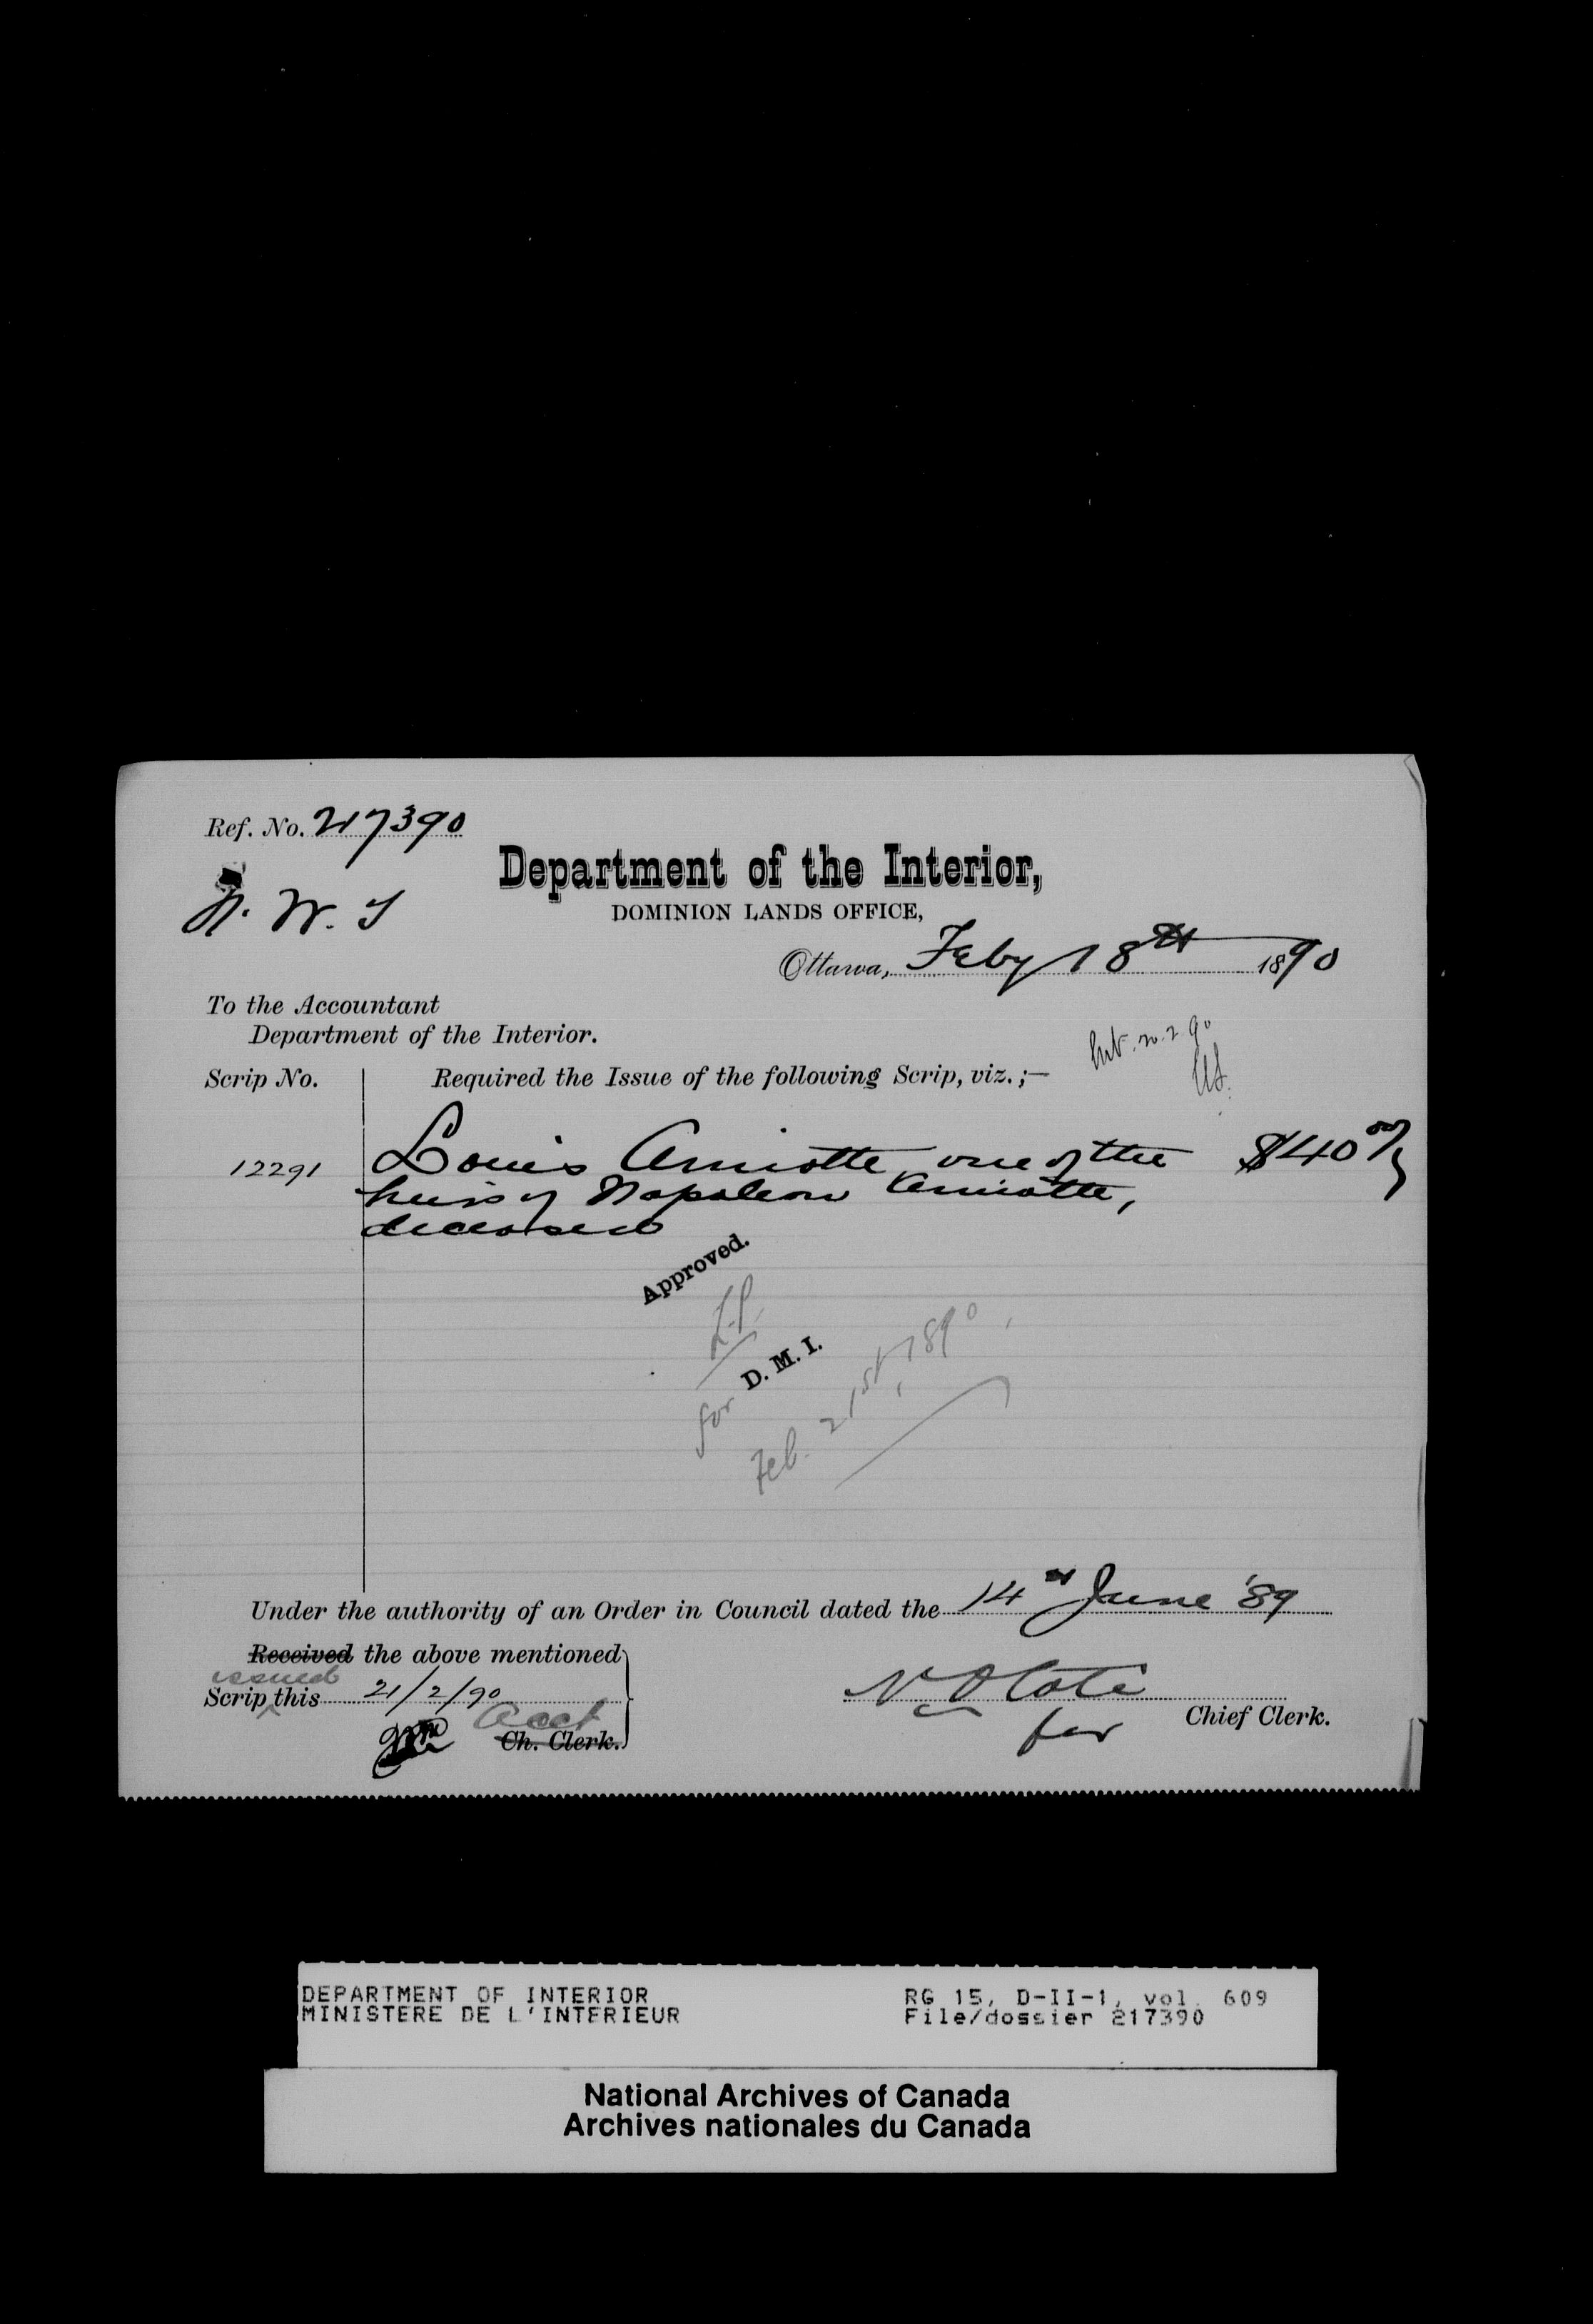 Ref. No. 217390
N. W. T
Department of the Interior,
DOMINION LANDS OFFICE,
Ottawa, Feby 18th 1890
To the Accountant
Department of the Interior.
20.2.90
Scrip No. Required the Issue of the following Scrip, viz.;—
12291 Louis Amiotte, one of the $40 00/
heirs of Napoleon Amiotte,
deceased
Approved.
D. M. I.
for
Feb. 21st, 1890.
Under the authority of an Order in Council dated the 14th June '89
Received the above mentioned
issued
Scrip this 21/2/90
Acct
Ch. Clerk.
N O Cote
for Chief Clerk.
DEPARTMENT OF INTERIOR
MINISTERE DE L'INTERIEUR
RG 15, D-II-1, vol. 609
File/dossier 217390
National Archives of Canada
Archives nationales du Canada